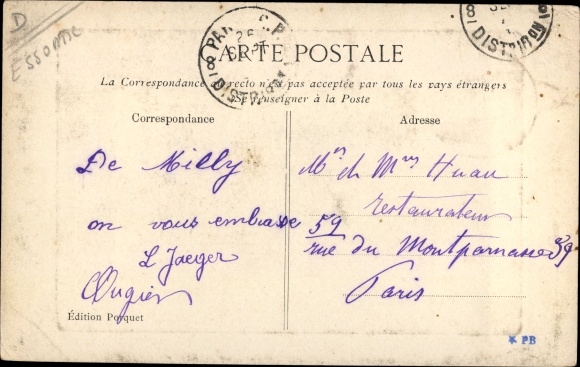 D
ESSONNE
CARTE POSTALE
La Correspondance au recto n'est pas acceptée par tous les pays étrangers
Se renseigner à la Poste
Correspondance
Adresse
De Milly
on vous embrasse
L Jaeger
Mr et Mme Huau
restaurateur
59
rue du Montparnasse 59
Paris
Édition Porquet
PB
PARIS
26
SEPT
DISTRIBUTION
DISTRIBUTION